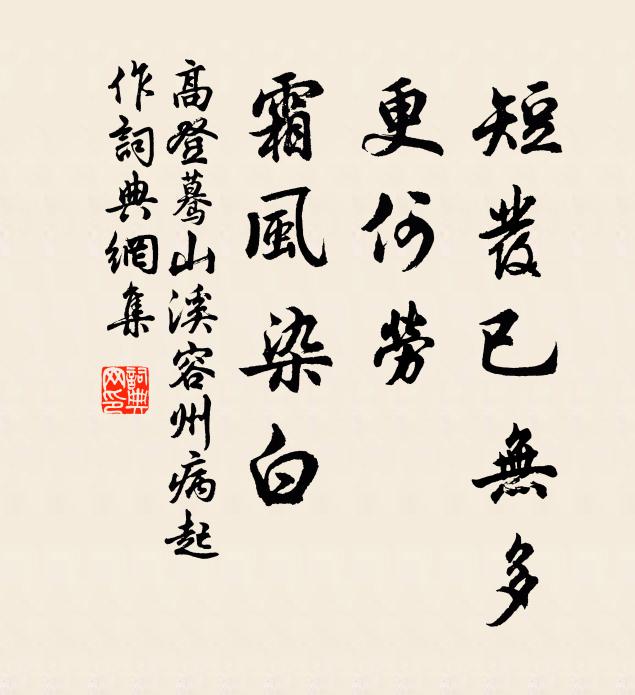 短發已無多
更何勞
霜風染白
高登驀山溪容州病起
作詞典網集
詞典網印